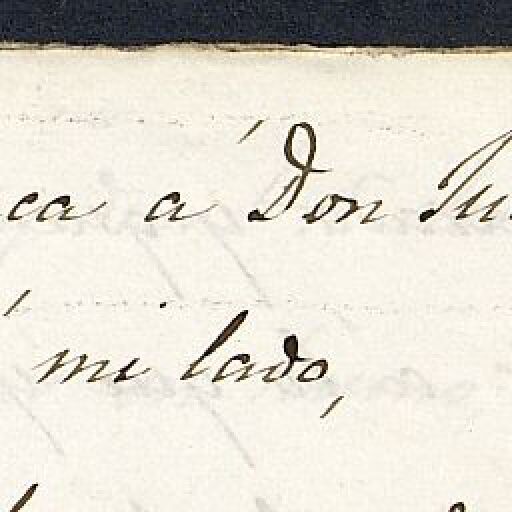 ca á Don Ju
mi lado,